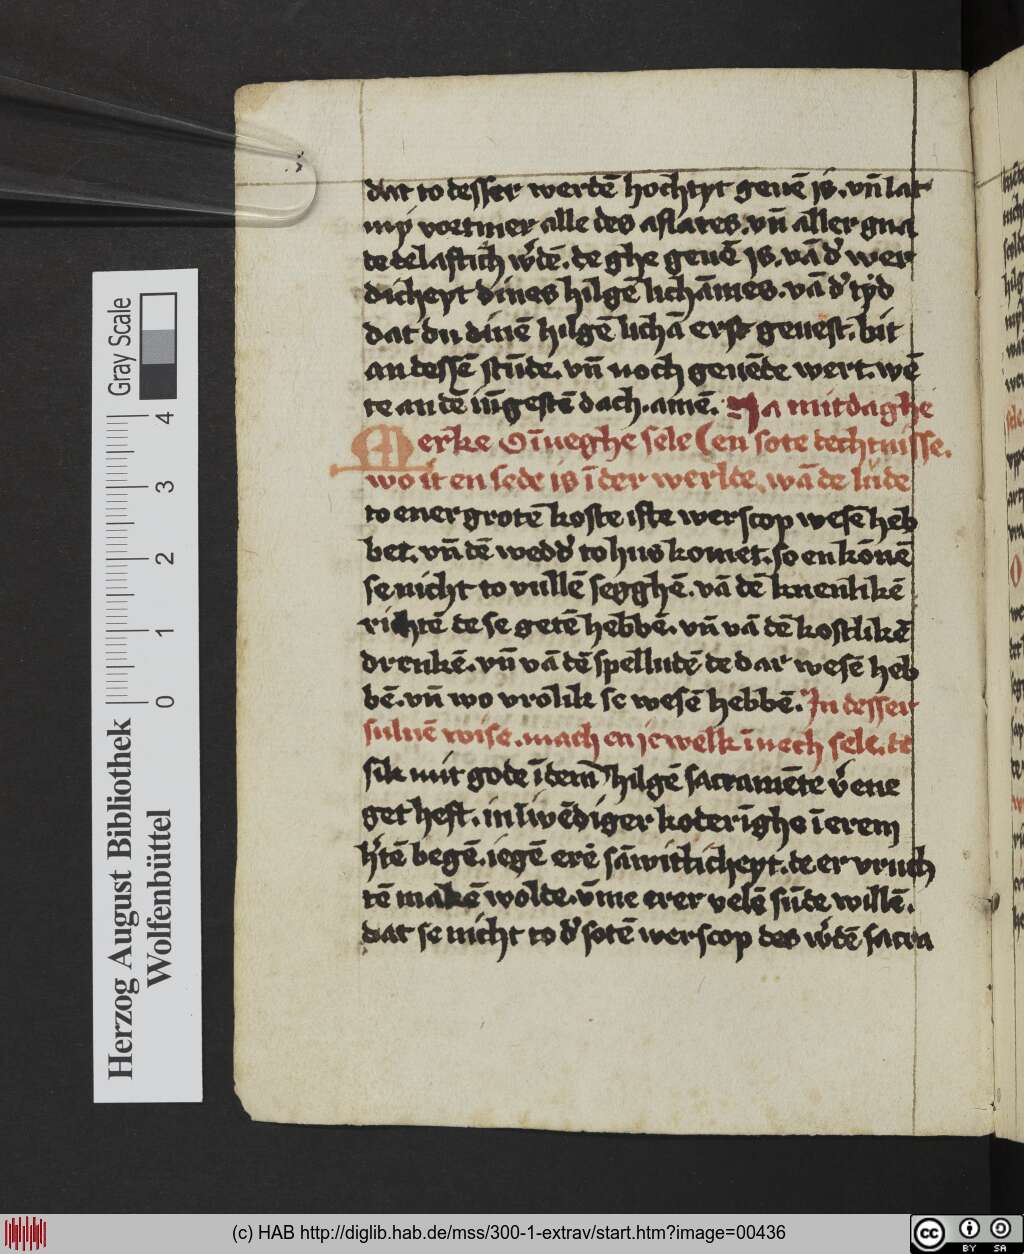 dat to desser werdē hochtyt geuē js. vn̄ lat
my vortmer alle des aflates. vn̄ aller gna
de delaftich w'dē. de ghe geuē js. vā d' wer
dicheyt dines hilgē lichāmes. vā d' tyd
dat du dinē hilgē lichā erst geuest. bit
an dessē stūde. vn̄ noch geuēde wert. wē
te an dē iūgestē dach. amē. Na mitdaghe
Merke O īneghe sele en sote dechtnisse.
wo it en sede is ī der werlde. wā de lude
to ener grotē koste iste werscop wesē heb
bet. vn̄ dē wedd' to hus komet. so en kōnē
se nicht to vullē segghē. vā dē knenlikē
richtē de se getē hebbē. vn̄ vā dē kostlikē
drenkē. vn̄ vā dē spelludē de dar wesē heb
bē. vn̄ wo vrolik se wesē hebbē. In desser
suluē wise. mach en jewelk īnech sele. de
sik mit gode ī dem hilgē sacramēte v'ene
get heft. in liwēdiger koderīghe ī erem
h'tē begē. iegē erē sāwitticheyt. de er vruch
tē makē wolde. v̄me erer velē sūde willē.
dat se nicht to d' sotē werscop des w'dē sacra
Herzog August Bibliothek
Wolfenbüttel
Gray Scale
0 1 2 3 4
(c) HAB http://diglib.hab.de/mss/300-1-extrav/start.htm?image=00436
cc BY SA